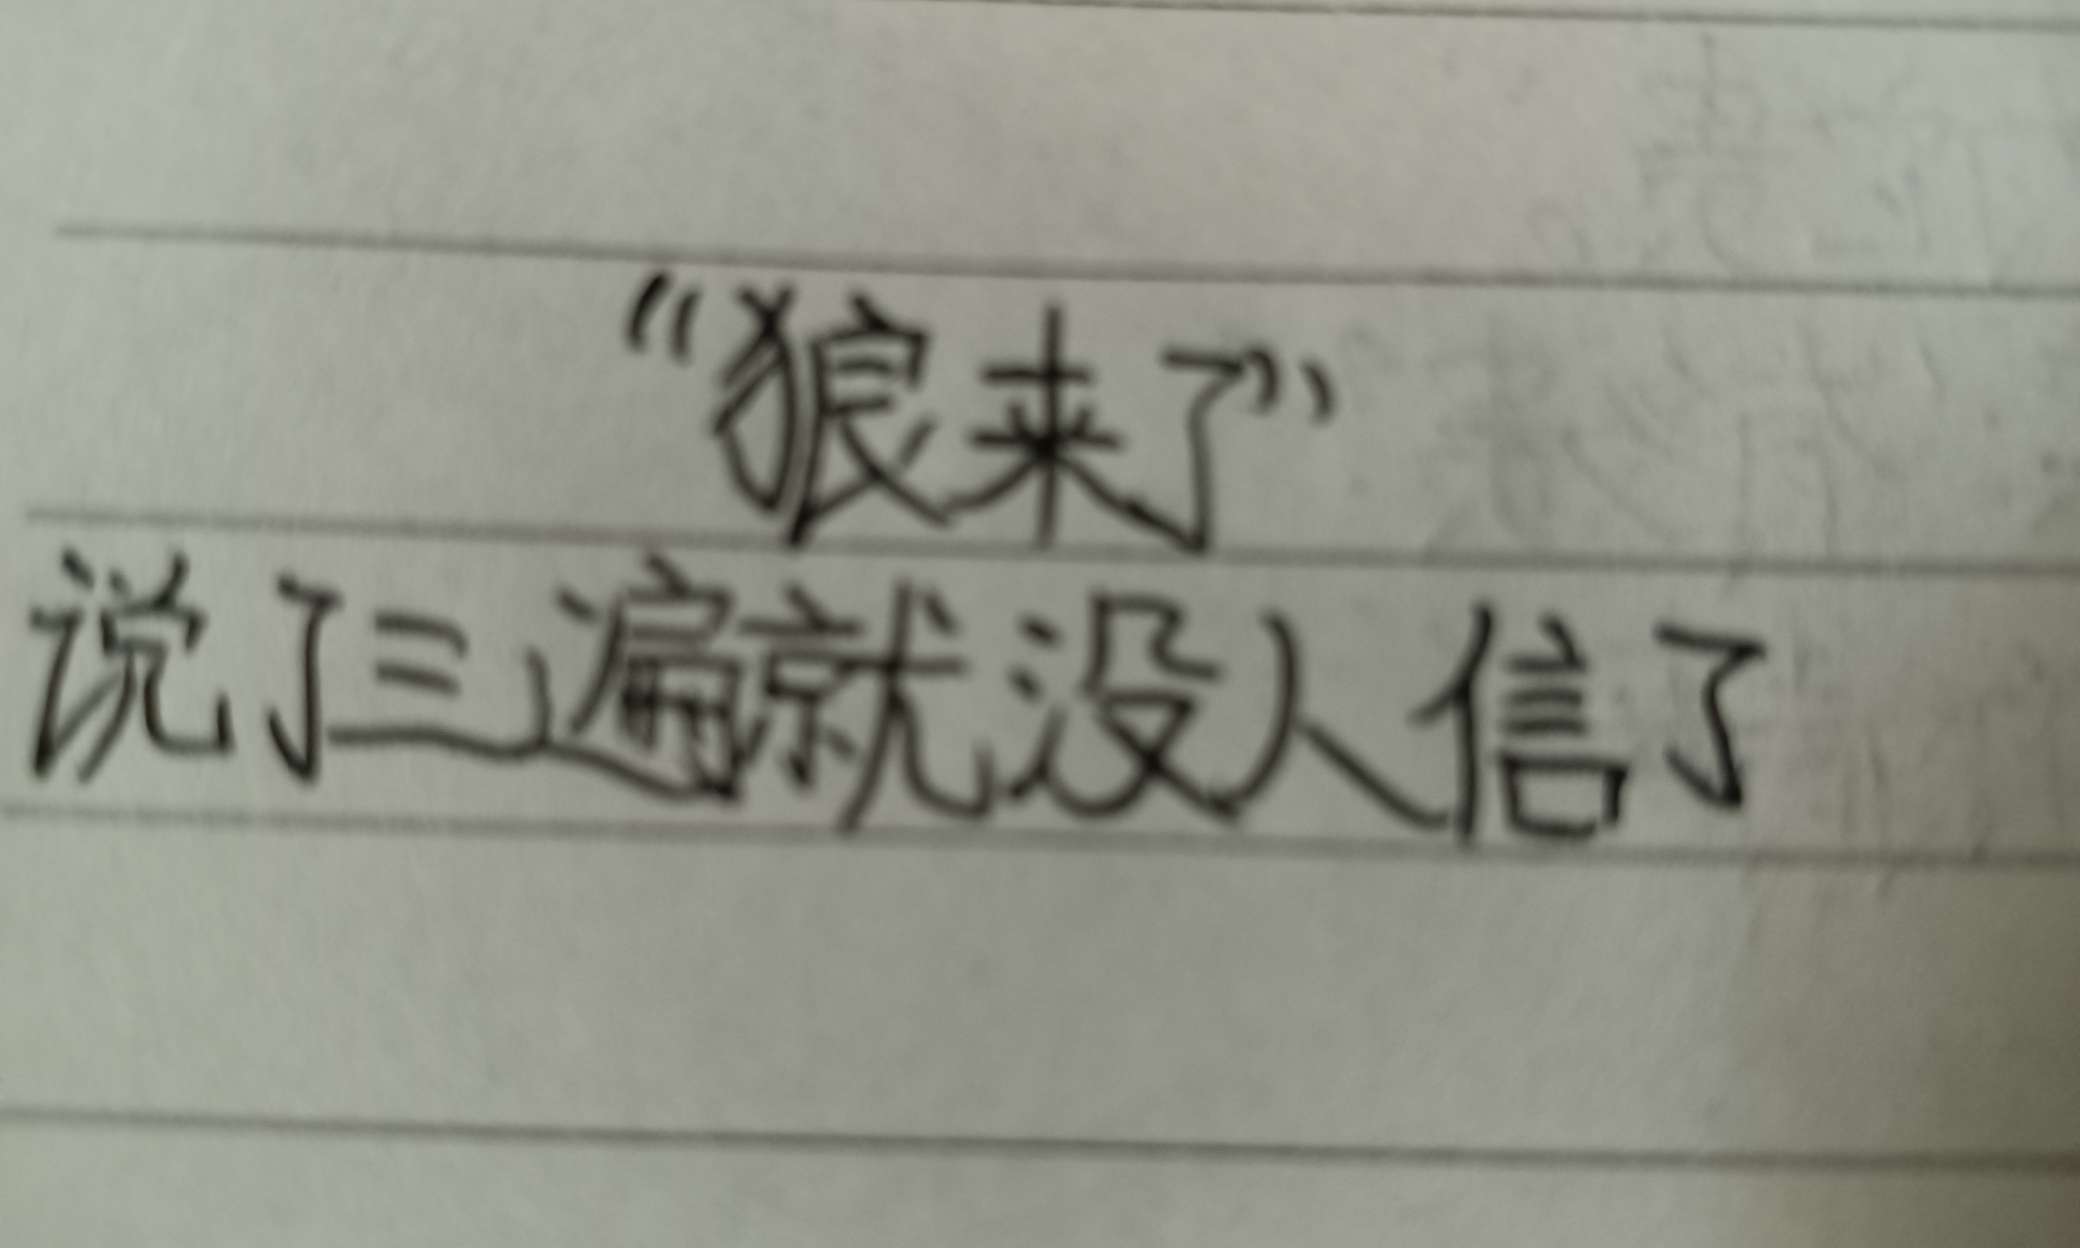 “狼来了”
说了三遍就没人信了